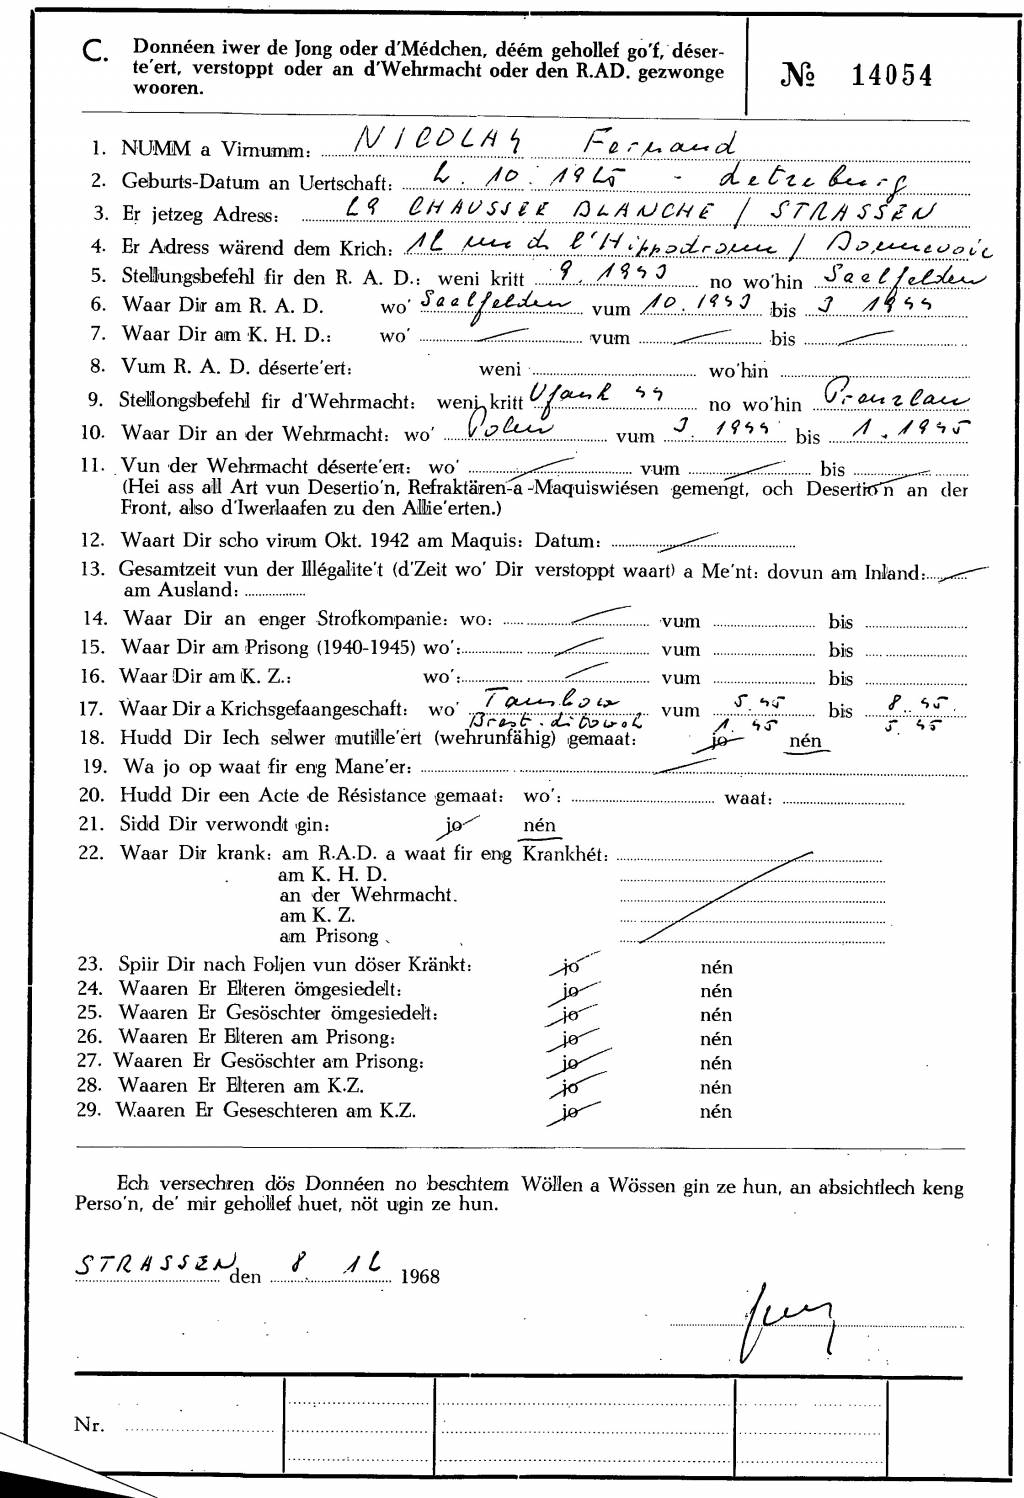 C. Donnéen iwer de Jong oder d'Médchen, déém gehollef go'f, déser-
te'ert, verstoppt oder an d'Wehrmacht oder den R.AD. gezwonge
wooren.
№ 14054
1. NUMM a Virnumm: NICOLAS Fernand
2. Geburts-Datum an Uertschaft: 2. 10. 1925 - Letzeburg
3. Er jetzeg Adress: 29 CHAUSSEE BLANCHE / STRASSEN
4. Er Adress wärend dem Krich: 12 rue de l'Hippodrome / Bonnevoie
5. Stellungsbefehl fir den R. A. D.: weni kritt 9. 1943 no wo'hin Saalfelden
6. Waar Dir am R. A. D. wo' Saalfelden vum 10. 1943 bis 3 1944
7. Waar Dir am K. H. D.: wo' vum bis
8. Vum R. A. D. déserte'ert: weni wo'hin
9. Stellongsbefehl fir d'Wehrmacht: weni kritt 44 no wo'hin Prenzlau
10. Waar Dir an der Wehrmacht: wo' Polen vum 3. 1944 bis 1. 1945
11. Vun der Wehrmacht déserte'ert: wo' vum bis
(Hei ass all Art vun Desertio'n, Refraktären-a -Maquiswiésen gemengt, och Desertio'n an der
Front, also d'Iwerlaafen zu den Allie'erten.)
12. Waart Dir scho virum Okt. 1942 am Maquis: Datum:
13. Gesamtzeit vun der Illégalite't (d'Zeit wo' Dir verstoppt waart) a Me'nt: dovun am Inland:
am Ausland:
14. Waar Dir an enger Strofkompanie: wo: vum bis
15. Waar Dir am Prisong (1940-1945) wo': vum bis
16. Waar Dir am K. Z.: wo': vum bis
17. Waar Dir a Krichsgefaangeschaft: wo' Tambow vum 5. 45 bis 8. 45.
Brest-Litowsk 1. 45 5. 45
18. Hudd Dir Iech selwer mutille'ert (wehrunfähig) gemaat: jo nén
19. Wa jo op waat fir eng Mane'er:
20. Hudd Dir een Acte de Résistance gemaat: wo': waat:
21. Sidd Dir verwondt gin: jo nén
22. Waar Dir krank: am R.A.D. a waat fir eng Krankhét:
am K. H. D.
an der Wehrmacht.
am K. Z.
am Prisong
23. Spiir Dir nach Foljen vun döser Kränkt: jo nén
24. Waaren Er Elteren ömgesiedelt: jo nén
25. Waaren Er Gesöschter ömgesiedelt: jo nén
26. Waaren Er Elteren am Prisong: jo nén
27. Waaren Er Gesöschter am Prisong: jo nén
28. Waaren Er Elteren am K.Z. jo nén
29. Waaren Er Geseschteren am K.Z. jo nén
Ech versechren dös Donnéen no beschtem Wöllen a Wössen gin ze hun, an absichtlech keng
Perso'n, de' mir gehollef huet, nöt ugin ze hun.
STRASSEN den 8 12 1968
Nr.